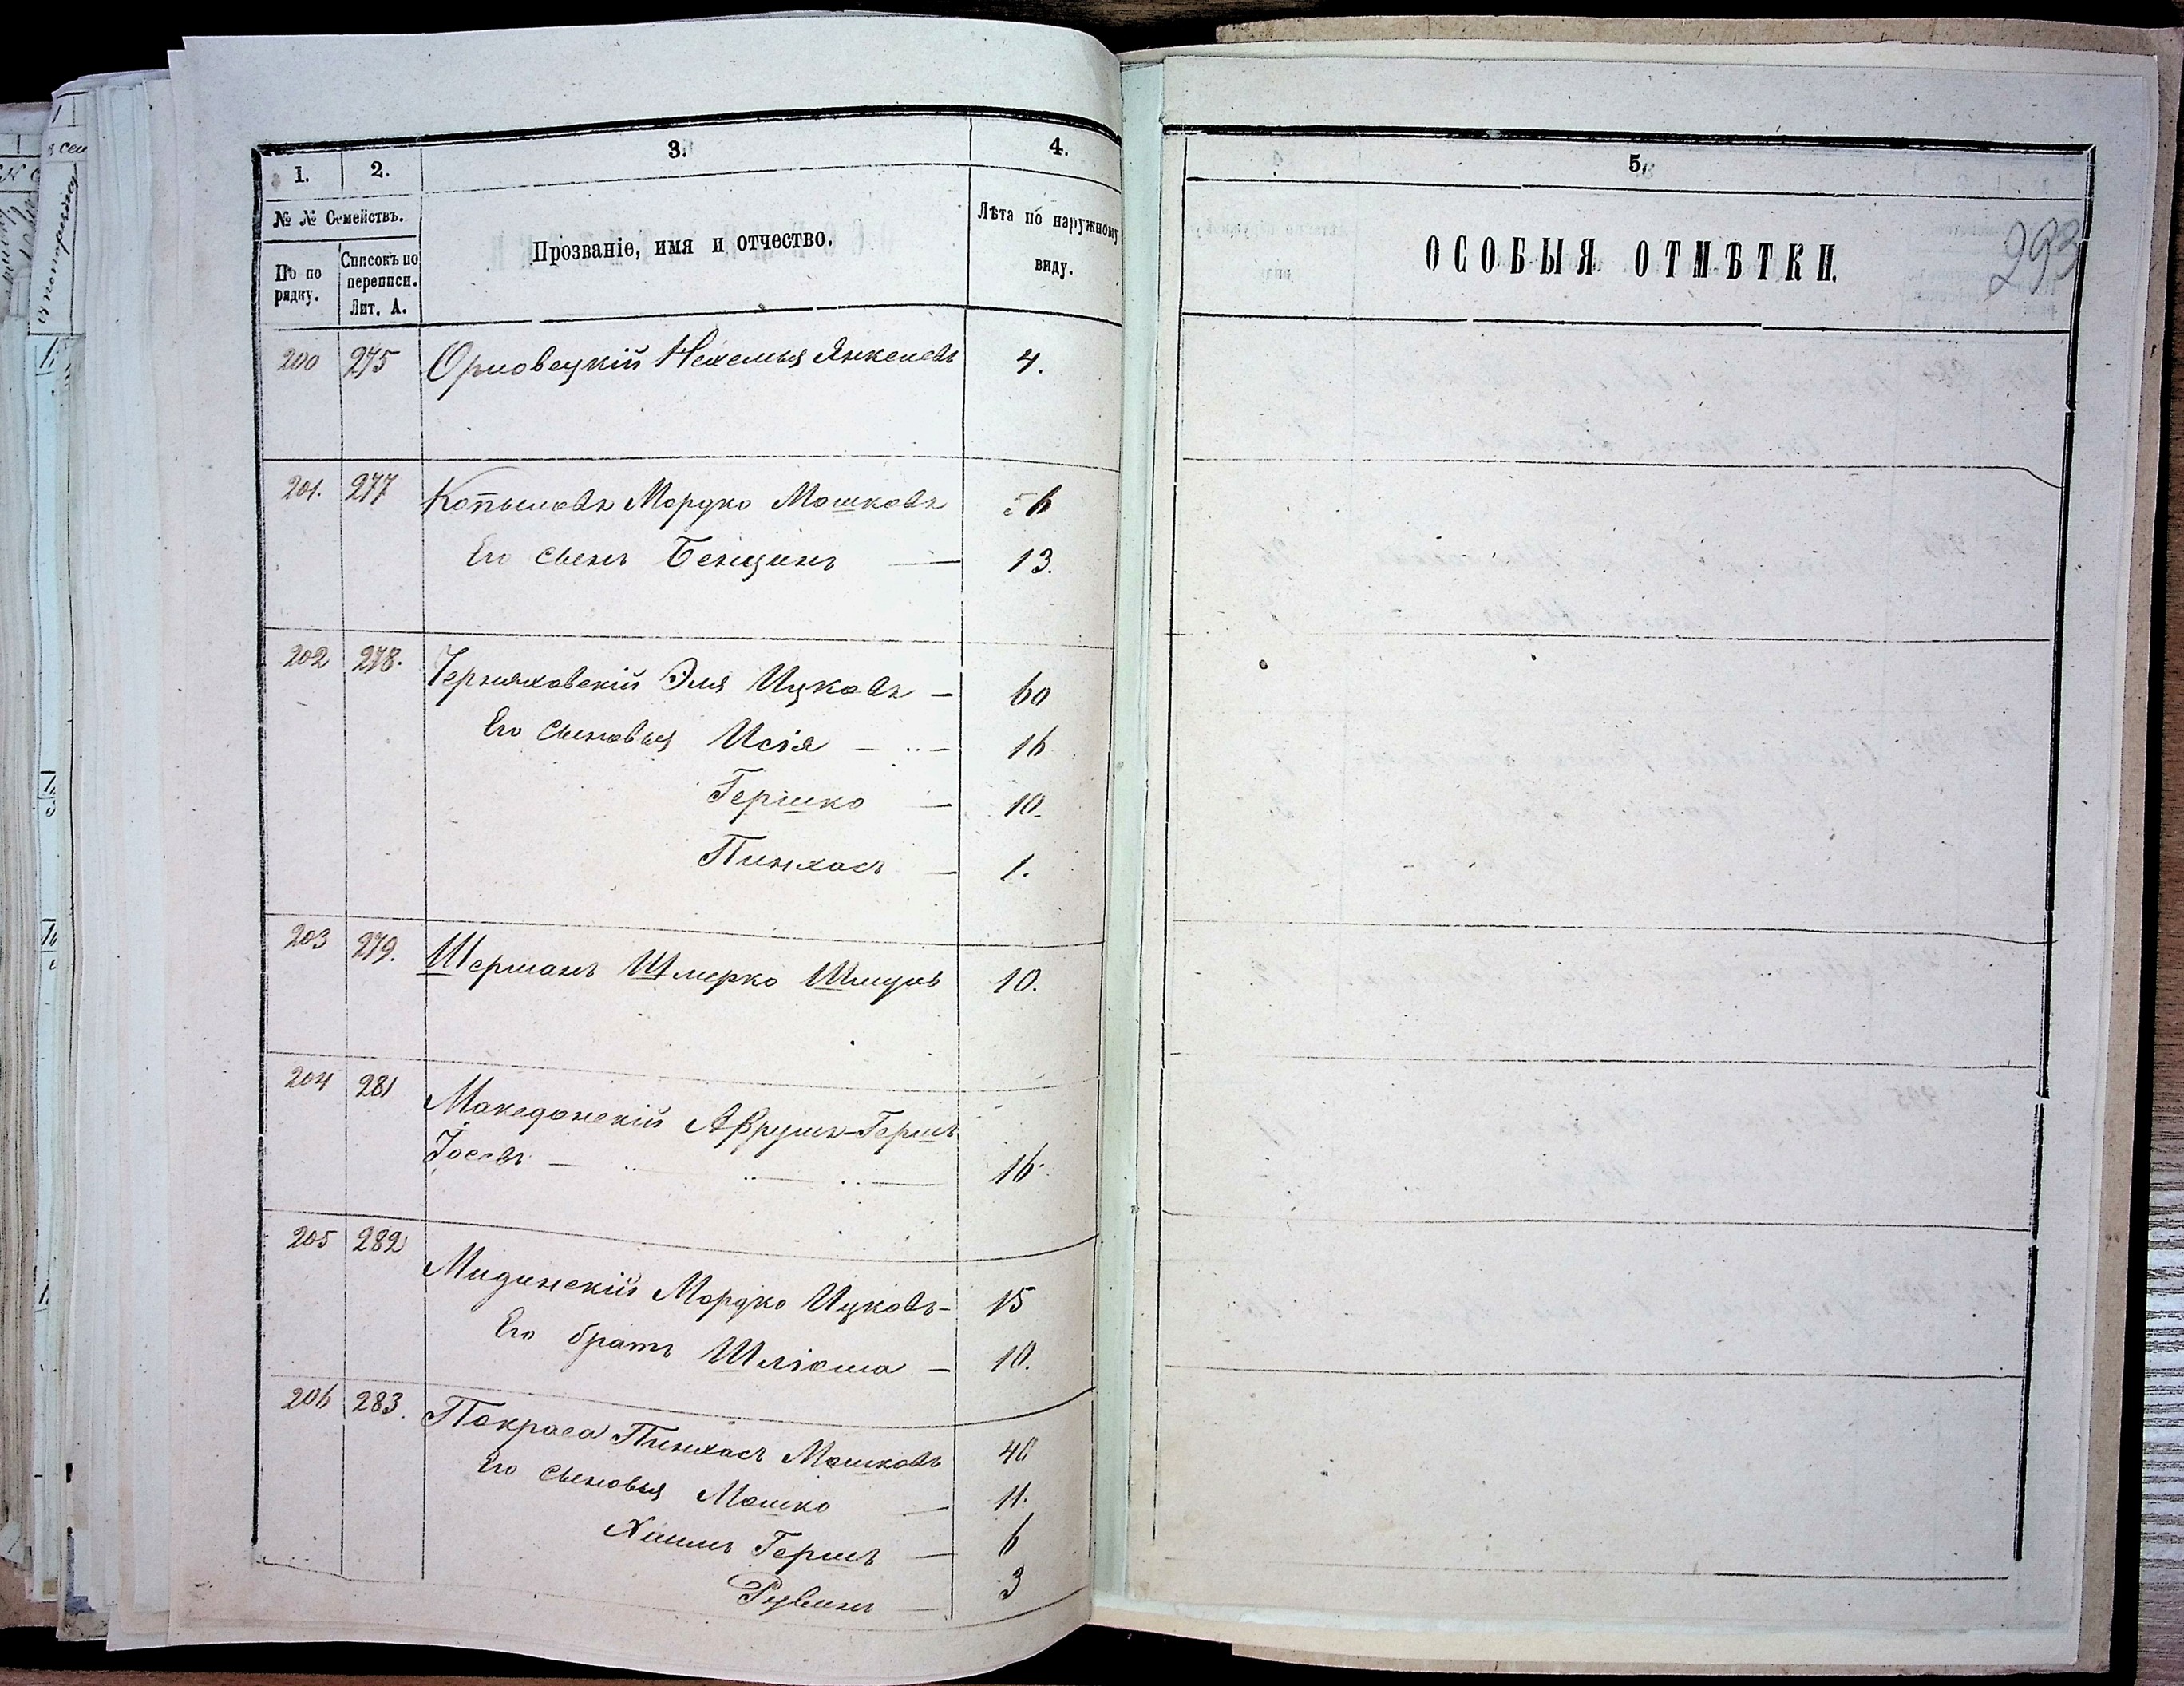 1. 2. 3. 4.
№ № Семействъ. Прозваніе, имя и отчество. Лѣта по наружному виду.
По по рядку. Списокъ по переписи. Лит. А.
200 275 Орловецкій Нехемья Янкелевъ 4.
201. 277 Копыловъ Мордко Мошковъ 56
Его сынъ Бенцинъ — 13.
202 278. Черняховскій Эля Ицковъ — 60
Его сыновья Исія — 16
Гершко — 10.
Пинхасъ — 1.
203 279. Шерманъ Шмерко Шмулевъ 10.
204 281 Македонскій Аврумъ-Гершъ
Іосевъ — 16.
205 282 Мидинскій Мордко Ицковъ — 15
Его братъ Шліома — 10.
206 283. Покраса Пинхасъ Мошковъ 46
Его сыновья Мошко — 11.
Хаимъ Гершъ — 6
Рувинъ — 3
5.
ОСОБЫЯ ОТМѢТКИ.
293